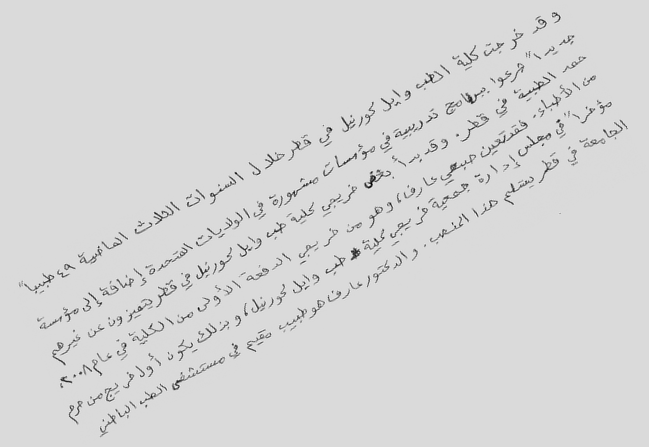 وقد خرجت كلية الطب وايل كورنيل في قطر خلال السنوات الثلاث الماضية ٤٩ طبيباً
جديداً شرعوا ببرامج تدريبية في مؤسسات مشهورة في الولايات المتحدة إضافة إلى مؤسسة
حمد الطبية في قطر. وقد بدأ بعض خريجي كلية طب وايل كورنيل في قطر يتميزون عن غيرهم
من الأطباء. فقد تعين صبحي عارف، وهو من خريجي الدفعة الأولى من الكلية في عام ٢٠٠٨،
مؤخراً في مجلس إدارة جمعية خريجي كلية طب وايل كورنيل، وبذلك يكون أول خريج من حرم
الجامعة في قطر يستلم هذا المنصب. والدكتور عارف هو طبيب مقيم في مستشفى الطب الباطني